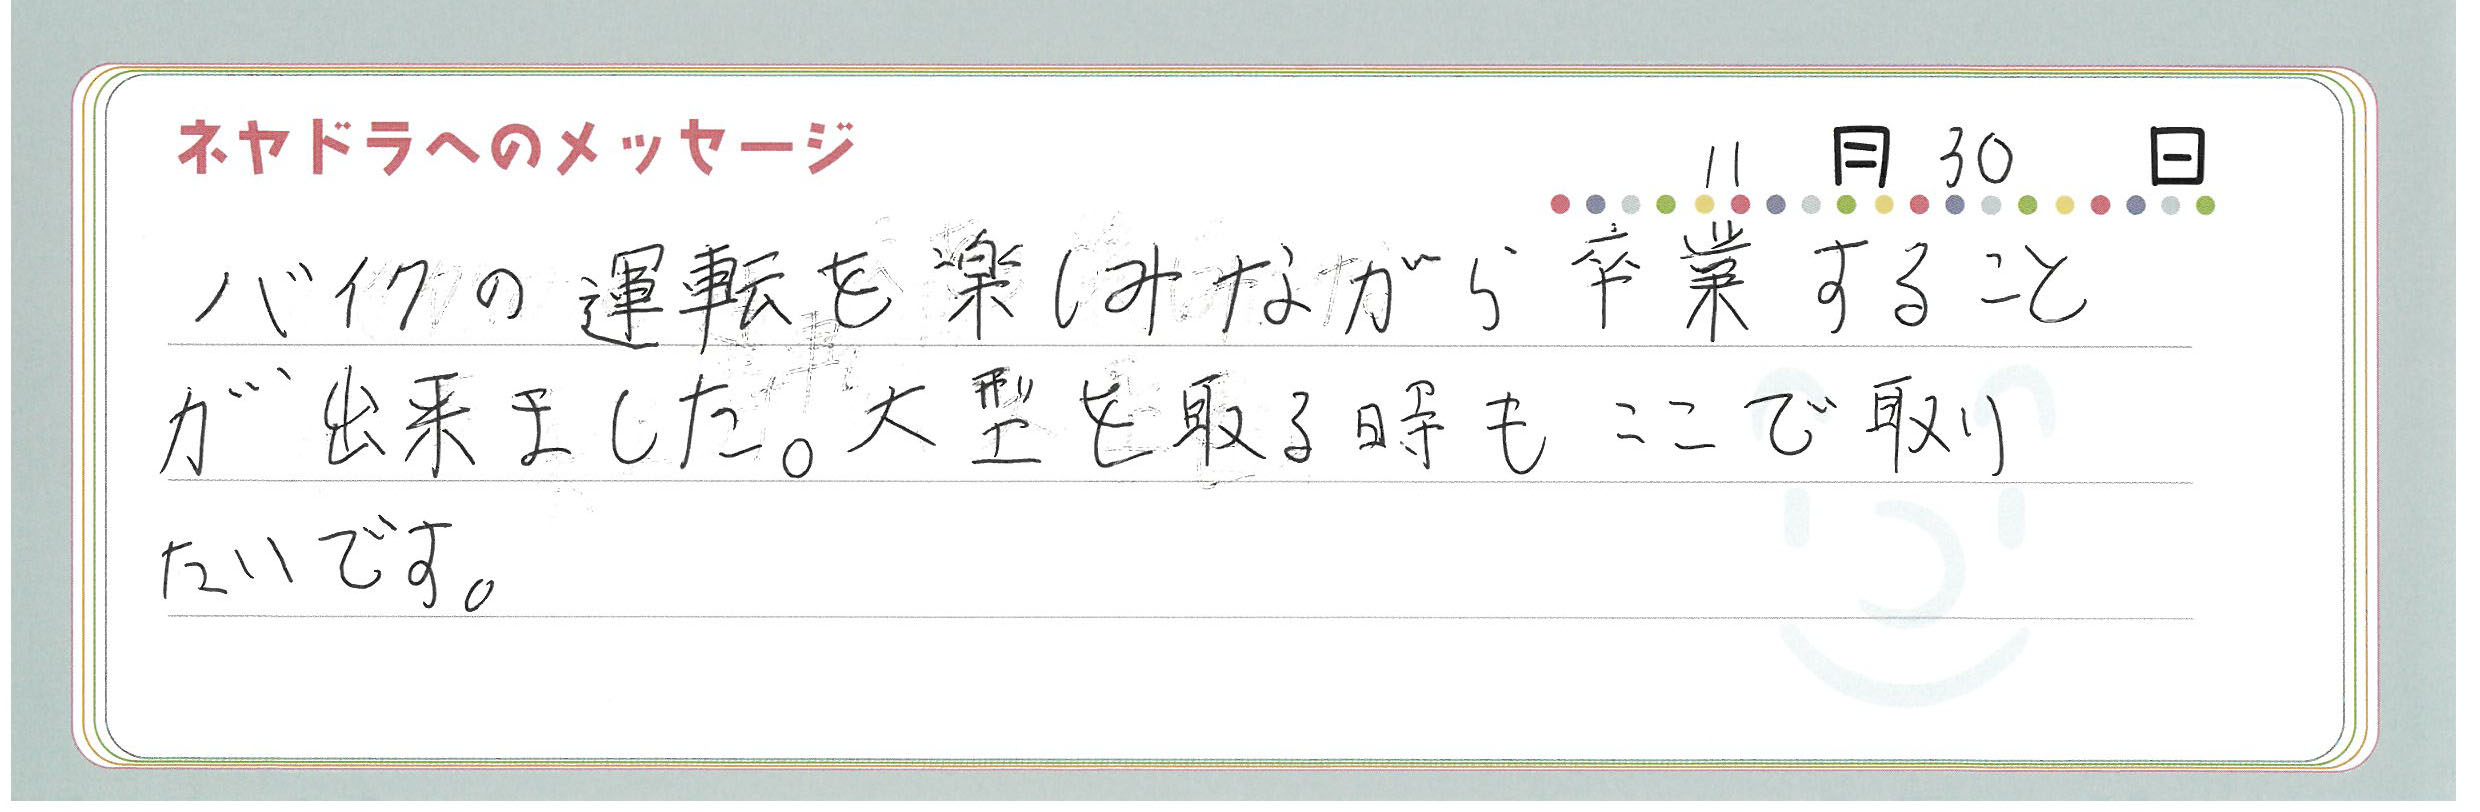 ネヤドラへのメッセージ 11月30日
バイクの運転を楽しみながら卒業すること
が出来ました。大型を取る時もここで取り
たいです。